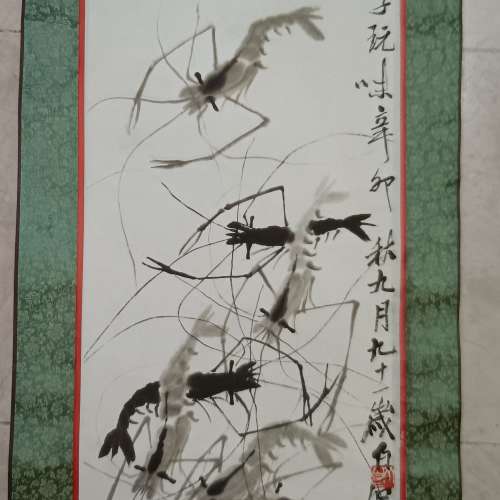 玩味辛卯秋九月九十一歲白石